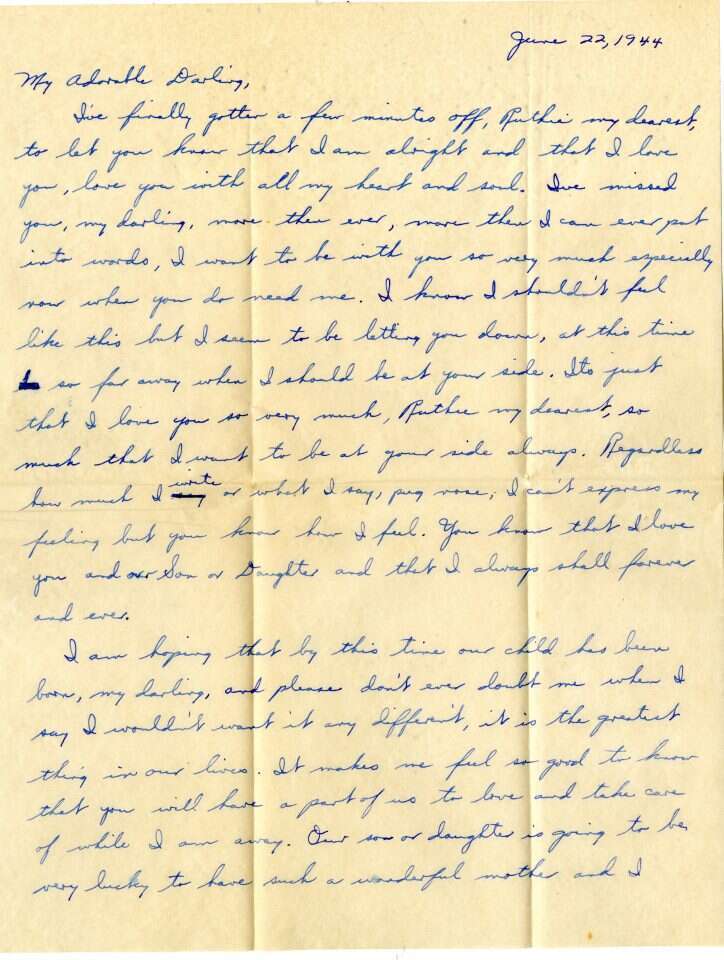 June 22, 1944
My Adorable Darling,
I've finally gotten a few minutes off, Ruthie my dearest,
to let you know that I am alright and that I love
you, love you with all my heart and soul. I've missed
you, my darling, more then ever, more then I can ever put
into words, I want to be with you so very much especially
now when you do need me. I know I shouldn't feel
like this but I seem to be letting you down, at this time
so far away when I should be at your side. Its just
that I love you so very much, Ruthie my dearest, so
much that I want to be at your side always. Regardless
how much I write or what I say, pug nose, I can't express my
feeling but you know how I feel. You know that I love
you and our Son or Daughter and that I always shall forever
and ever.
I am hoping that by this time our child has been
born, my darling, and please don't ever doubt me when I
say I wouldn't want it any different, it is the greatest
thing in our lives. It makes me feel so good to know
that you will have a part of us to love and take care
of while I am away. Our son or daughter is going to be
very lucky to have such a wonderful mother and I